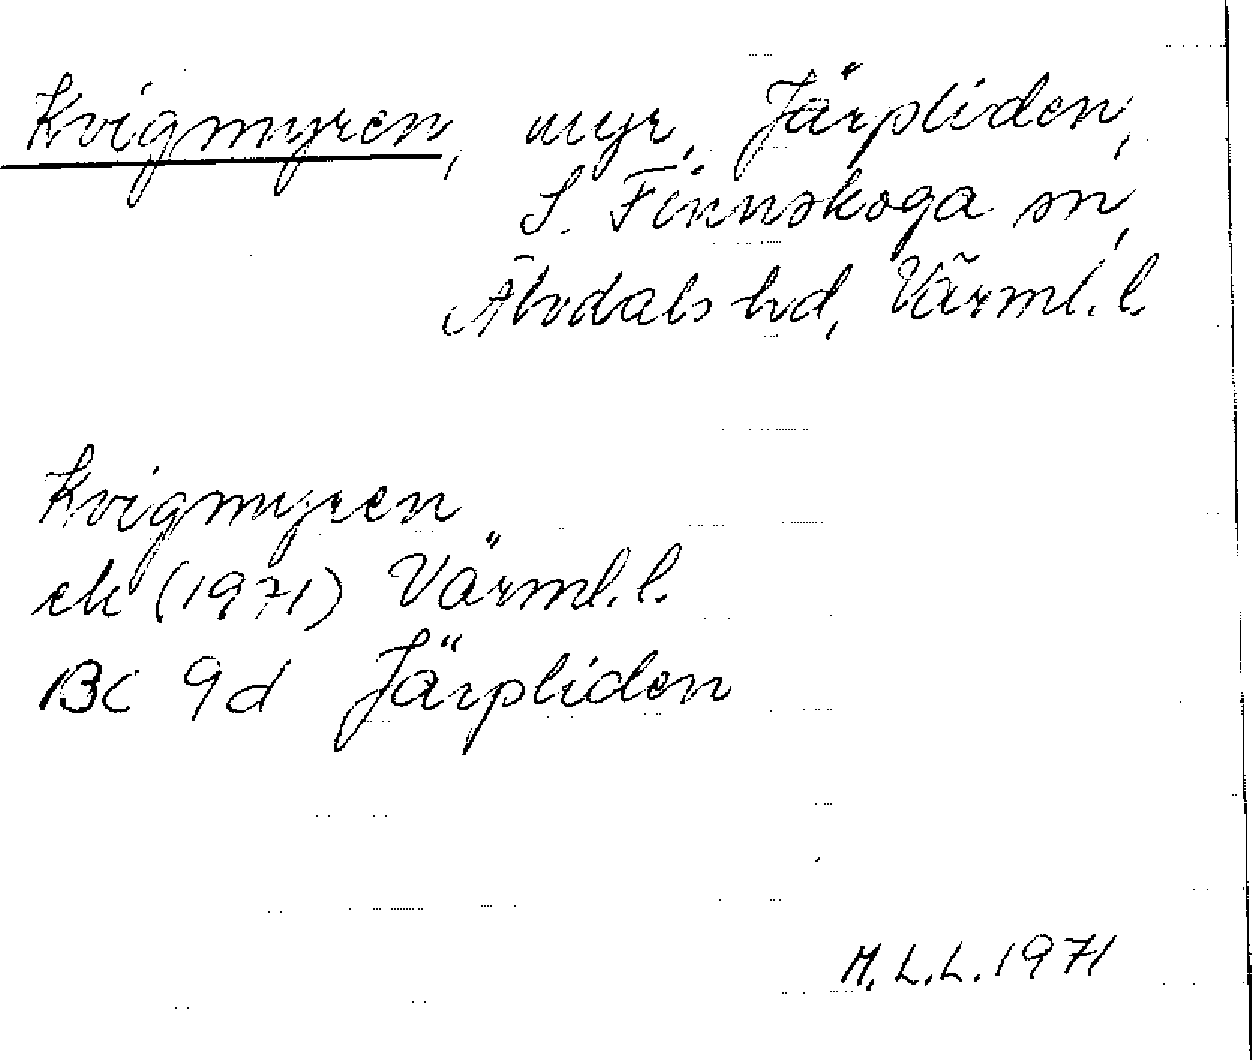 Kvigmyren, myr, Järpliden,
S. Finnskoga sn,
Älvdals hd, Värml. l.
Kvigmyren
ek (1971) Värml. l.
BC 9d Järpliden
M.L.L. 1971